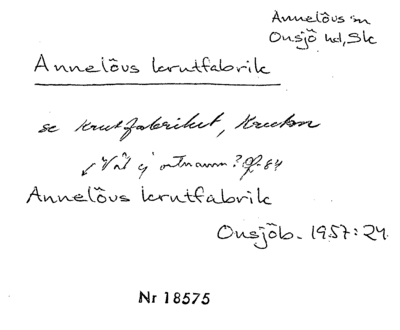 Annelövs sn
Onsjö hd, Sk
Annelövs krutfabrik
se Krutfabriket,
ej ortnamn?
Annelövs krutfabrik
Onsjöb. 1957: 24.
Nr 18575